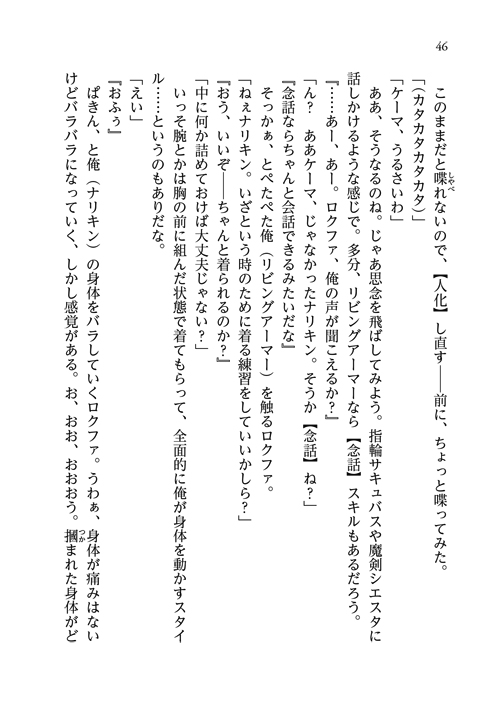 46
このままだと喋れないので、【人化】し直す――前に、ちょっと喋ってみた。
しゃべ
「(カタカタカタカタ)」
「ケーマ、うるさいわ」
ああ、そうなるのね。じゃあ思念を飛ばしてみよう。指輪サキュバスや魔剣シエスタに
話しかけるような感じで。多分、リビングアーマーなら【念話】スキルもあるだろう。
『……あー、あー。ロクファ、俺の声が聞こえるか?』
「ん? ああケーマ、じゃなかったナリキン。そうか【念話】ね?」
『念話ならちゃんと会話できるみたいだな』
そっかぁ、とぺたぺた俺(リビングアーマー)を触るロクファ。
「ねぇナリキン。いざという時のために着る練習をしていいかしら?」
『おう、いいぞ――ちゃんと着られるのか?』
「中に何か詰めておけば大丈夫じゃない?」
いっそ腕とかは胸の前に組んだ状態で着てもらって、全面的に俺が身体を動かすスタイ
ル……というのもありだな。
「えい」
『おふぅ』
ぱきん、と俺(ナリキン)の身体をバラしていくロクファ。うわぁ、身体が痛みはない
けどバラバラになっていく、しかし感覚がある。お、おお、おおおう。摑まれた身体がど
つか